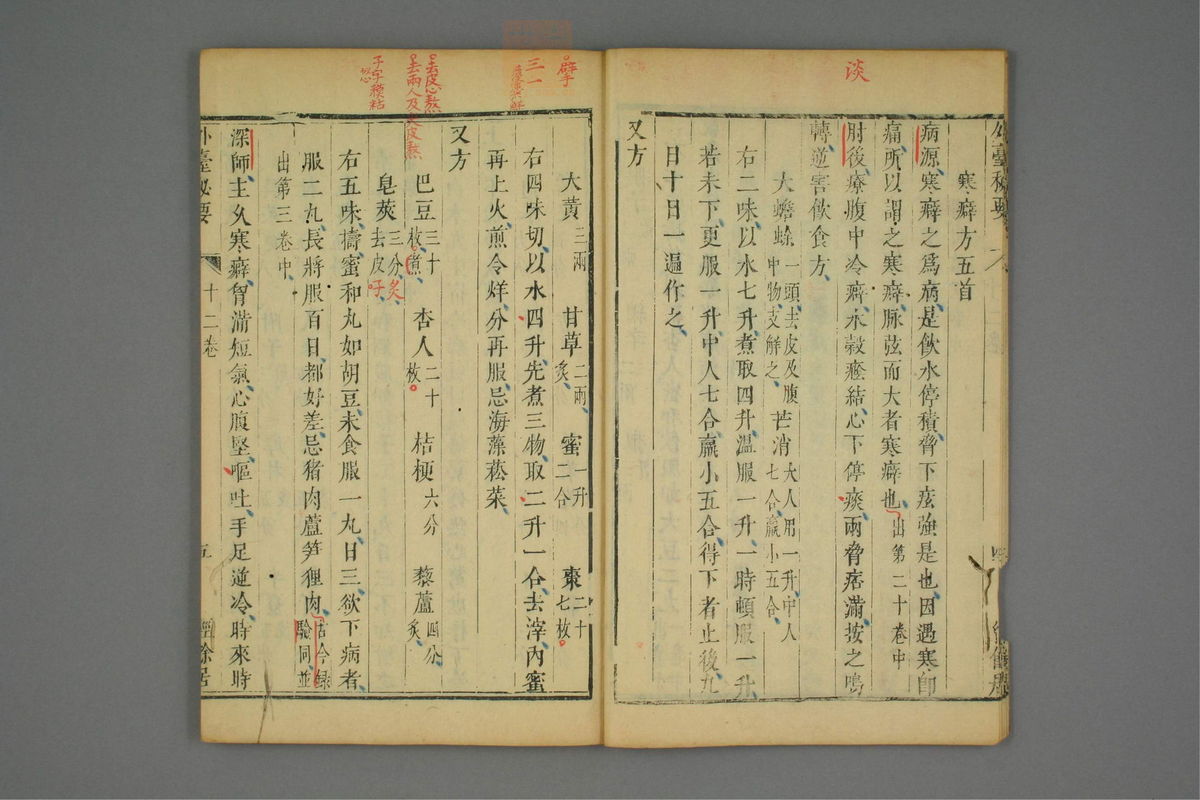 淡
寒癖方五首
病源寒癖之為病是飲水停積脅下痃強是也因遇寒即
痛所以謂之寒癖脉弦而大者寒癖也出第二十卷中
肘後療腹中冷癖水穀癊結心下停痰兩脅痞滿按之鳴
轉逆害飲食方
大蟾蜍一頭去皮及腹中物支解之 芒消大人用一升中人七合羸小五合
右二味以水七升煮取四升溫服一升一時頓服一升
若未下更服一升中人七合羸小五合得下者止後九
日十日一遍作之
又方
擘
三一
大黃三兩 甘草二兩炙 蜜一升二合 棗二十七枚
右四味切以水四升先煮三物取二升一合去滓內蜜
再上火煎令烊分再服忌海藻菘菜
又方
去皮心熬
去兩人及尖皮熬
子字積粘
巴豆三十枚煮 杏人二十枚 桔梗六分 藜蘆四分炙
皂莢三分炙去皮子
右五味擣蜜和丸如胡豆未食服一丸日三欲下病者
服二丸長將服百日都好差忌猪肉蘆笋狸肉古今録驗同並
出第三卷中
深師主久寒癖胷滿短氣心腹堅嘔吐手足逆冷時來時
外臺秘要 十二卷 五 經餘居